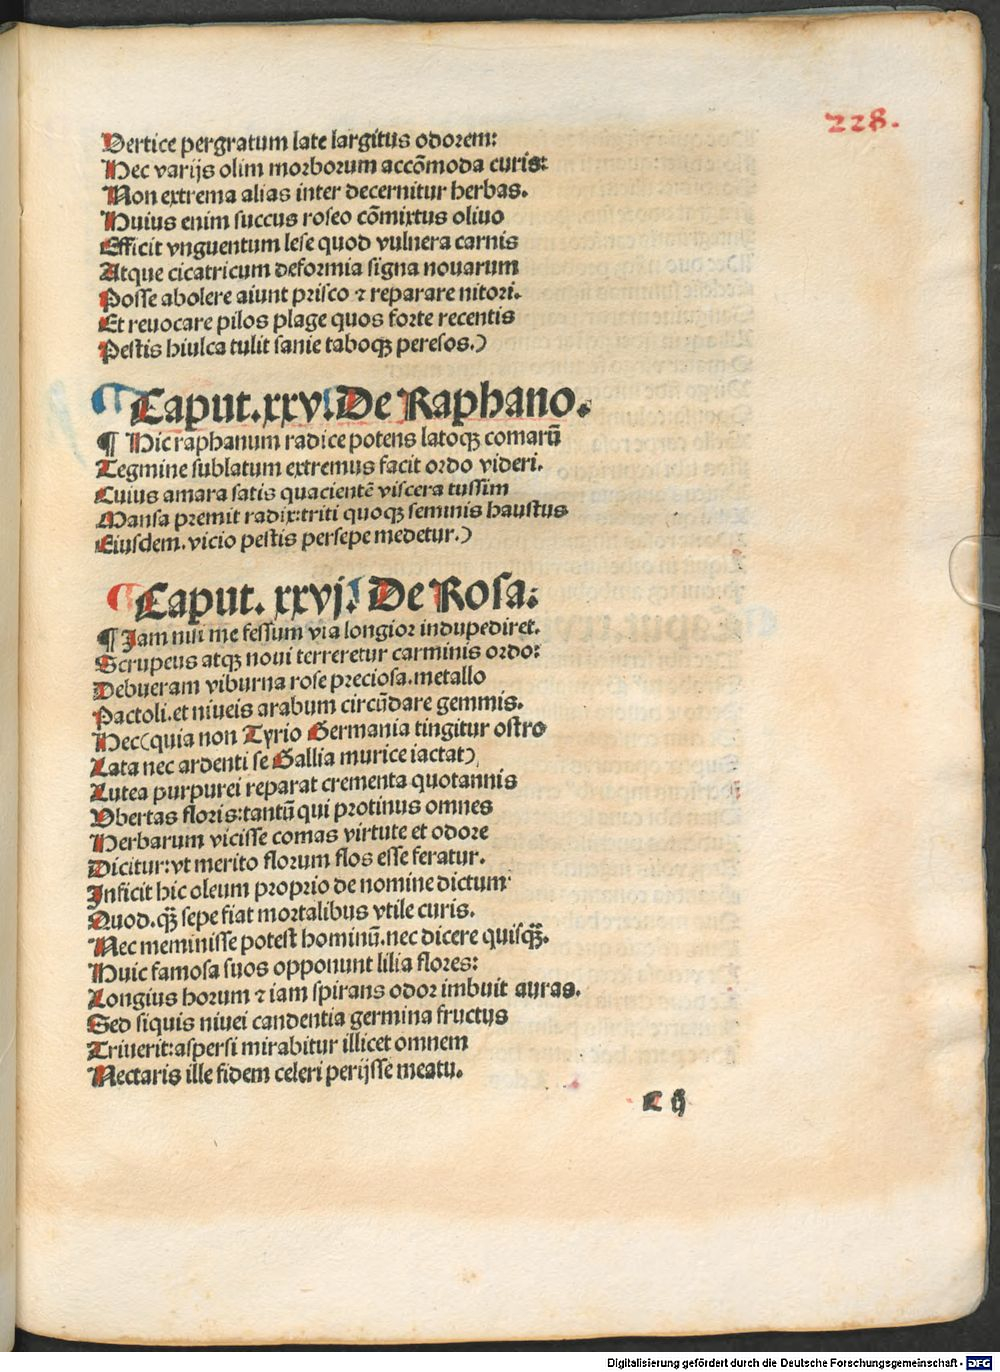 228.
Vertice pergratum late largitus odorem:
Hec varijs olim morborum accōmoda curis:
Non extrema alias inter decernitur herbas.
Huius enim succus roseo cōmixtus oliuo
Efficit vnguentum lese quod vulnera carnis
Atque cicatricum deformia signa nouarum
Posse abolere aiunt prisco ⁊ reparare nitori.
Et reuocare pilos plage quos forte recentis
Pestis hiulca tulit sanie taboqꝫ peresos.)
Caput.xxv. De Raphano.
¶ Hic raphanum radice potens latoqꝫ comarū
Tegmine sublatum extremus facit ordo videri.
Cuius amara satis quacientē viscera tussim
Mansa premit radix:triti quoqꝫ seminis haustus
Eiusdem.vicio pestis persepe medetur.)
Caput. xxvj. De Rosa:
¶ Jam nui me fessum via longior indupediret.
Scrupeus atqꝫ noui terreretur carminis ordo:
Debueram viburna rose preciosa.metallo
Pactoli.et niueis arabum circūdare gemmis.
Hec(quia non Tyrio Germania tingitur ostro
Lata nec ardenti se Gallia murice iactat)
Lutea purpurei reparat crementa quotannis
Vbertas floris:tantū qui protinus omnes
Herbarum vicisse comas virtute et odore
Dicitur:vt merito florum flos esse feratur.
Inficit hic oleum proprio de nomine dictum
Quod.qꝫ̄ sepe fiat mortalibus vtile curis.
Nec meminisse potest hominū.nec dicere quisqꝫ̄.
Huic famosa suos opponunt lilia flores:
Longius horum ⁊ iam spirans odor imbuit auras.
Sed siquis niuei candentia germina fructus
Triuerit:aspersi mirabitur illicet omnem
Nectaris ille fidem celeri perijsse meatu.
c ij
Digitalisierung gefördert durch die Deutsche Forschungsgemeinschaft - DFG